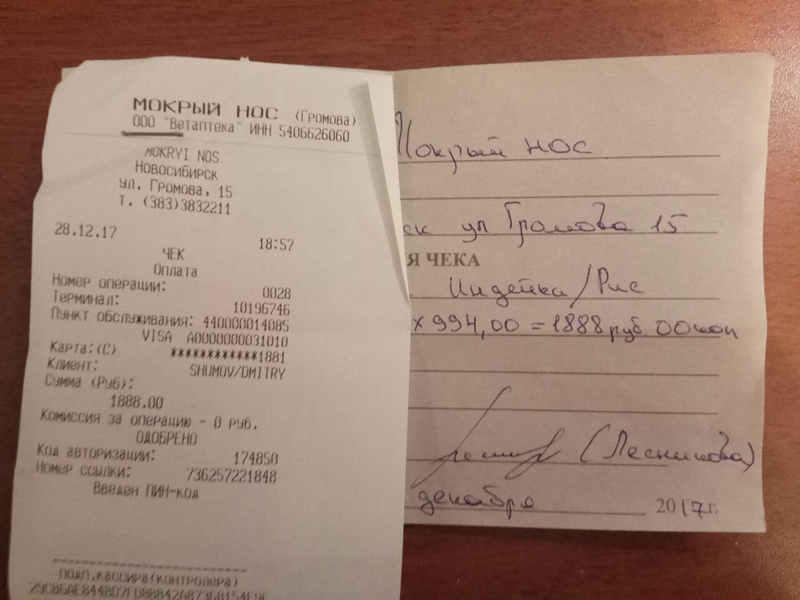 МОКРЫЙ НОС (Громова)
ООО "Ветаптека" ИНН 5406626060
MOKRYI NOS
Новосибирск
ул. Громова, 15
Т. (383)3832211
28.12.17 18:57
ЧЕК
Оплата
Номер операции: 0028
Терминал: 10196746
Пункт обслуживания: 440000014085
VISA A0000000031010
Карта:(C) ************1881
Клиент: SHUMOV/DMITRY
Сумма (Руб):
1888.00
Комиссия за операцию - 0 руб.
ОДОБРЕНО
Код авторизации: 174850
Номер ссылки: 736257221848
Введен ПИН-код
подп.кассира(контролера)
Мокрый НОС
ск ул Громова 15
Я ЧЕКА
Индейка/Рис
× 994,00 = 1888 руб 00 коп
(Лесникова)
декабря 2017 г.